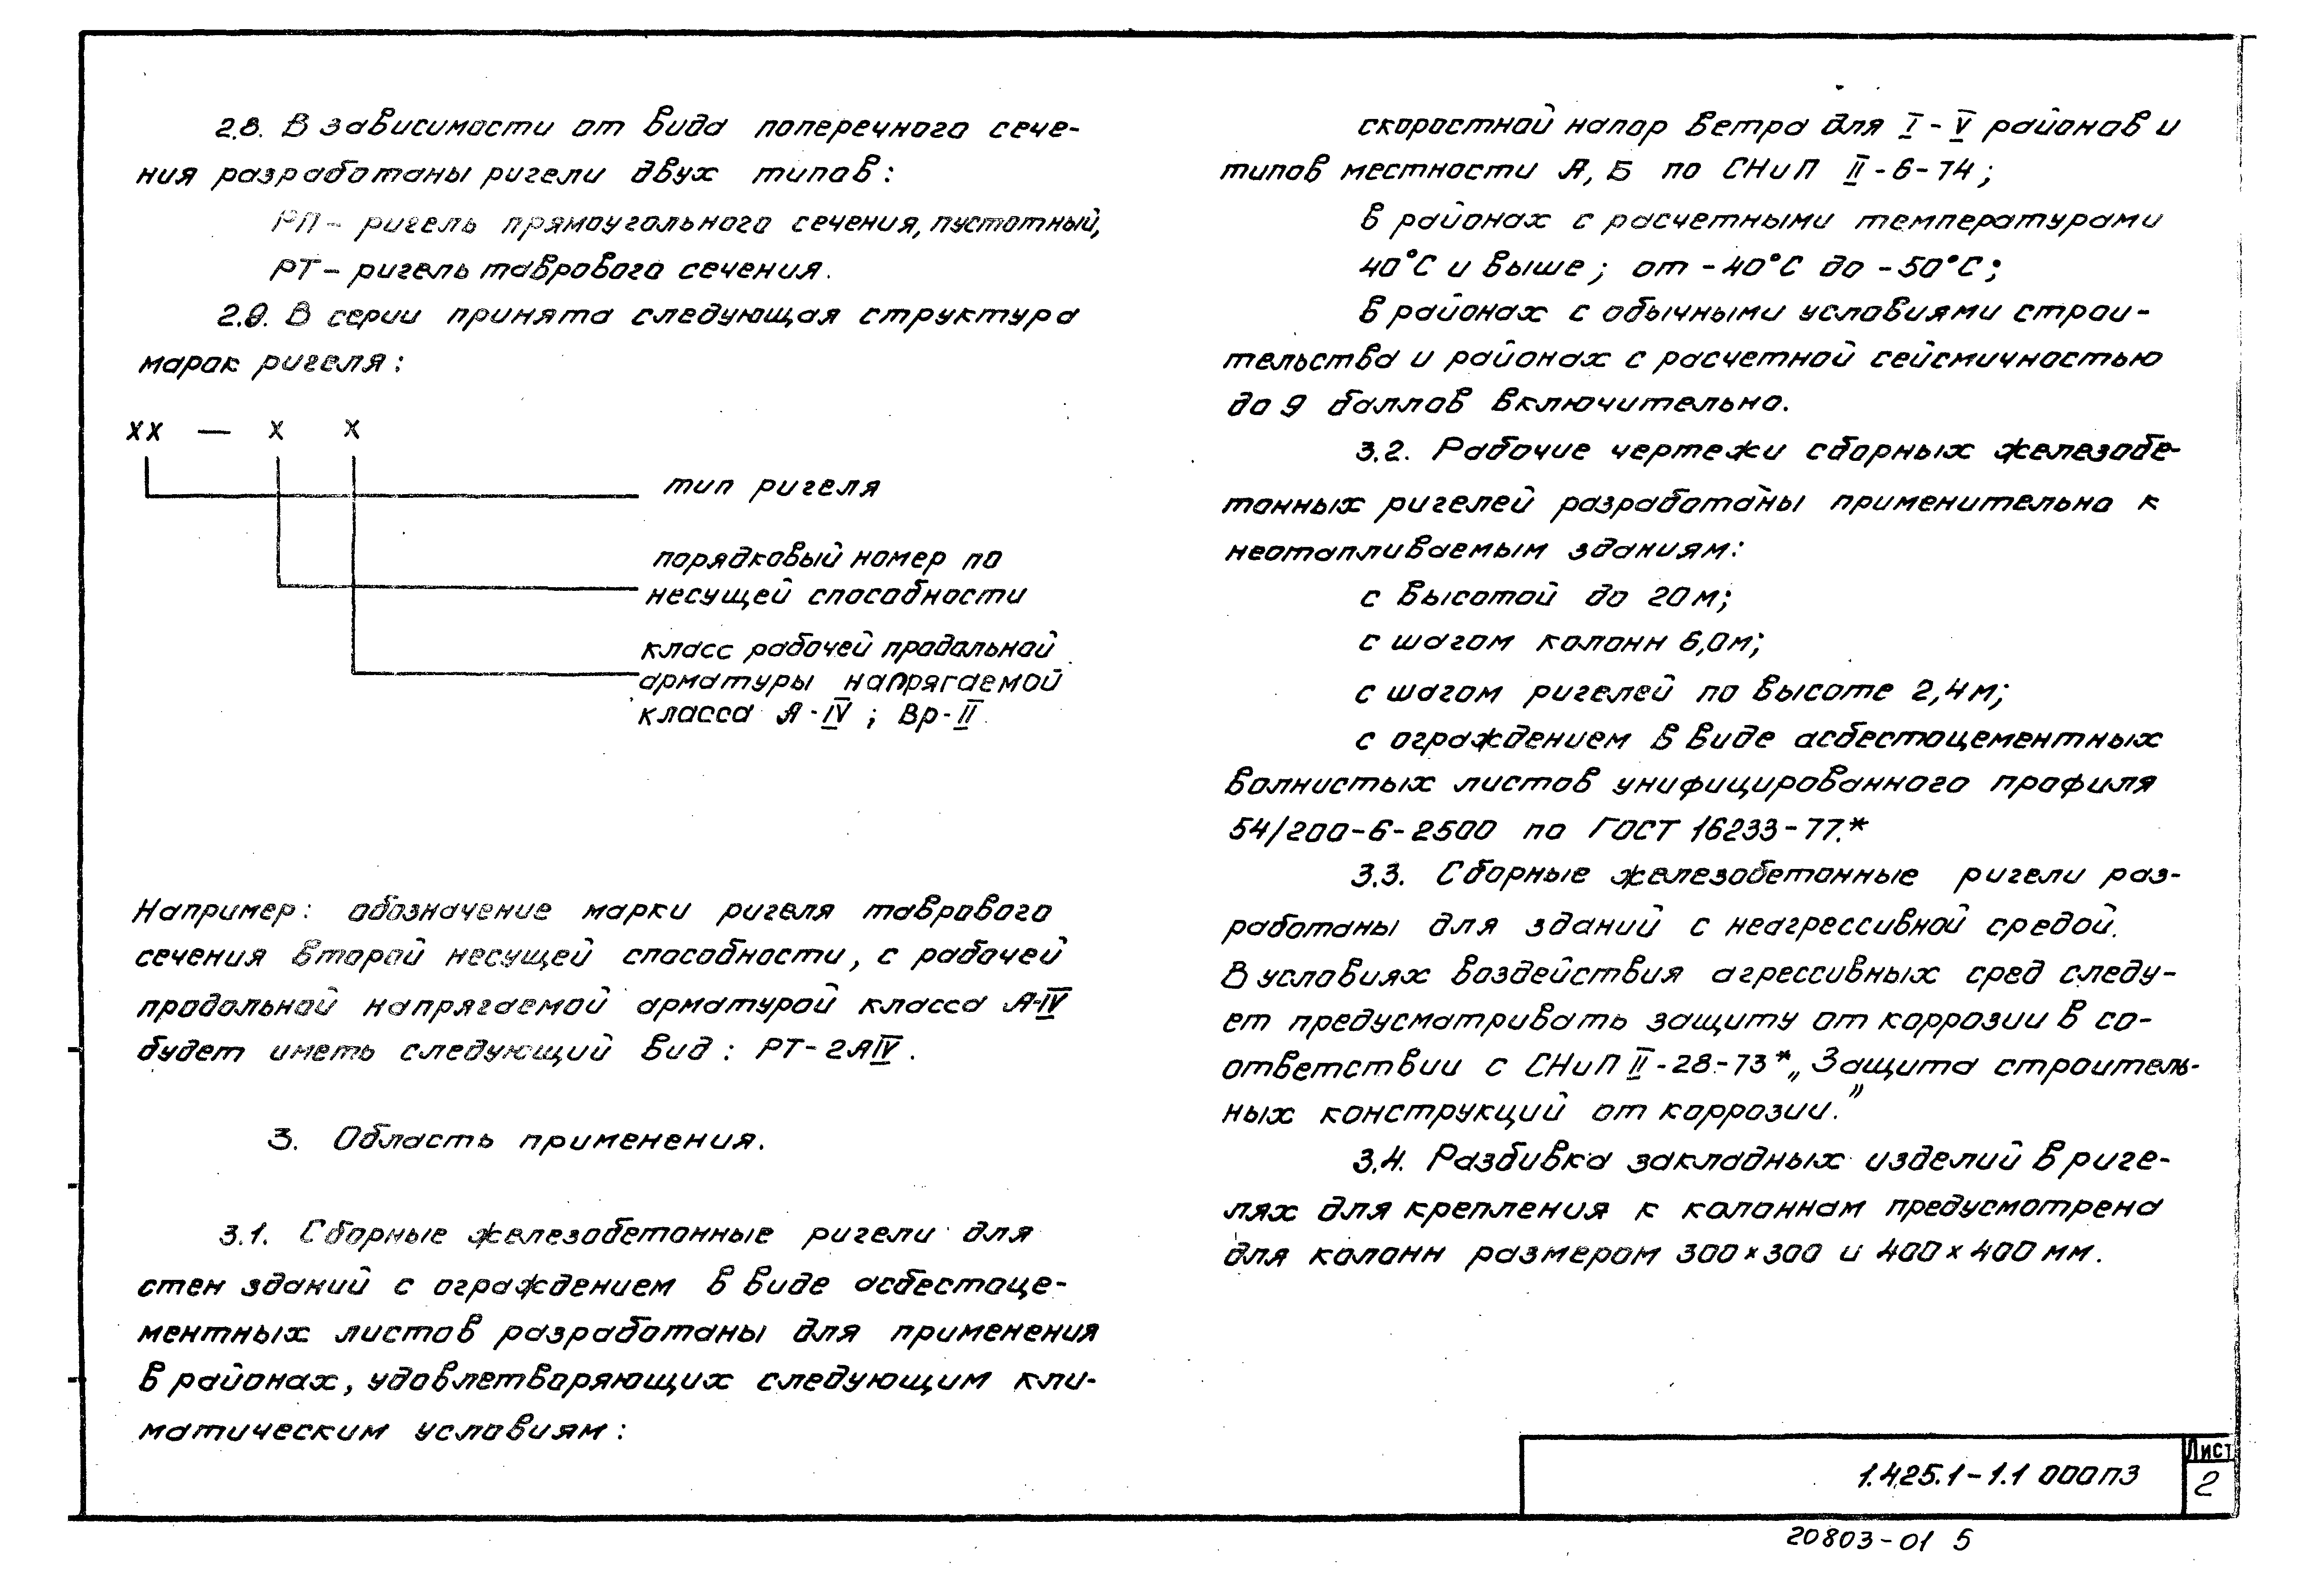 2.8. В зависимости от вида поперечного сече-
ния разработаны ригели двух типов:
РП - ригель прямоугольного сечения, пустотный,
РТ - ригель таврового сечения.
2.9. В серии принята следующая структура
марок ригеля:
ХХ — Х Х
тип ригеля
порядковый номер по
несущей способности
класс рабочей продольной
арматуры напрягаемой
класса А-IV ; Вр-II
Например: обозначение марки ригеля таврового
сечения второй несущей способности, с рабочей
продольной напрягаемой арматурой класса А-IV
будет иметь следующий вид: РТ-2АIV.
3. Область применения.
3.1. Сборные железобетонные ригели для
стен зданий с ограждением в виде асбестоце-
ментных листов разработаны для применения
в районах, удовлетворяющих следующим кли-
матическим условиям:
скоростной напор ветра для I - V районов и
типов местности А, Б по СНиП II-6-74;
в районах с расчетными температурами
40°С и выше; от -40°С до -50°С;
в районах с обычными условиями строи-
тельства и районах с расчетной сейсмичностью
до 9 баллов включительно.
3.2. Рабочие чертежи сборных железобе-
тонных ригелей разработаны применительно к
неотапливаемым зданиям:
с высотой до 20м;
с шагом колонн 6,0м;
с шагом ригелей по высоте 2,4м;
с ограждением в виде асбестоцементных
волнистых листов унифицированного профиля
54/200-6-2500 по ГОСТ 16233-77.*
3.3. Сборные железобетонные ригели раз-
работаны для зданий с неагрессивной средой.
В условиях воздействия агрессивных сред следу-
ет предусматривать защиту от коррозии в со-
ответствии с СНиП II-28-73* „Защита строитель-
ных конструкций от коррозии.”
3.4. Разбивка закладных изделий в риге-
лях для крепления к колоннам предусмотрена
для колонн размером 300×300 и 400×400 мм.
1.425.1-1.1 000ПЗ
Лист
2
20803-01 5